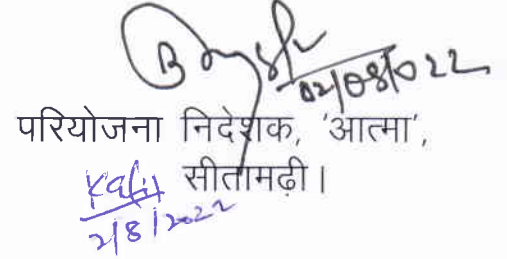 02/08/022
परियोजना निदेशक, 'आत्मा',
सीतामढ़ी।
2/8/2022